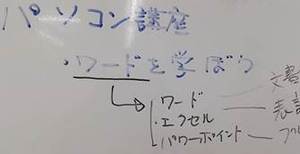 パソコン講座
・ワードを学ぼう
・ワード 文書
・エクセル 表計
・パワーポイント